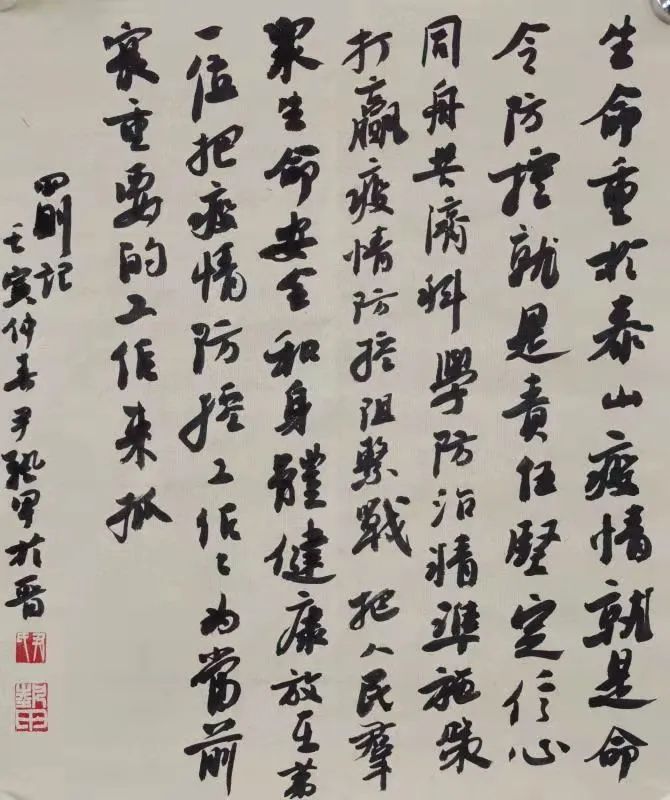 生命重於泰山疫情就是命
令防控就是責任堅定信心
同舟共濟科學防治精準施策
打贏疫情防控阻擊戰把人民羣
眾生命安全和身體健康放在第
一位把疫情防控工作〻為當前
最重要的工作來抓
記
壬寅仲春尹甲於晉